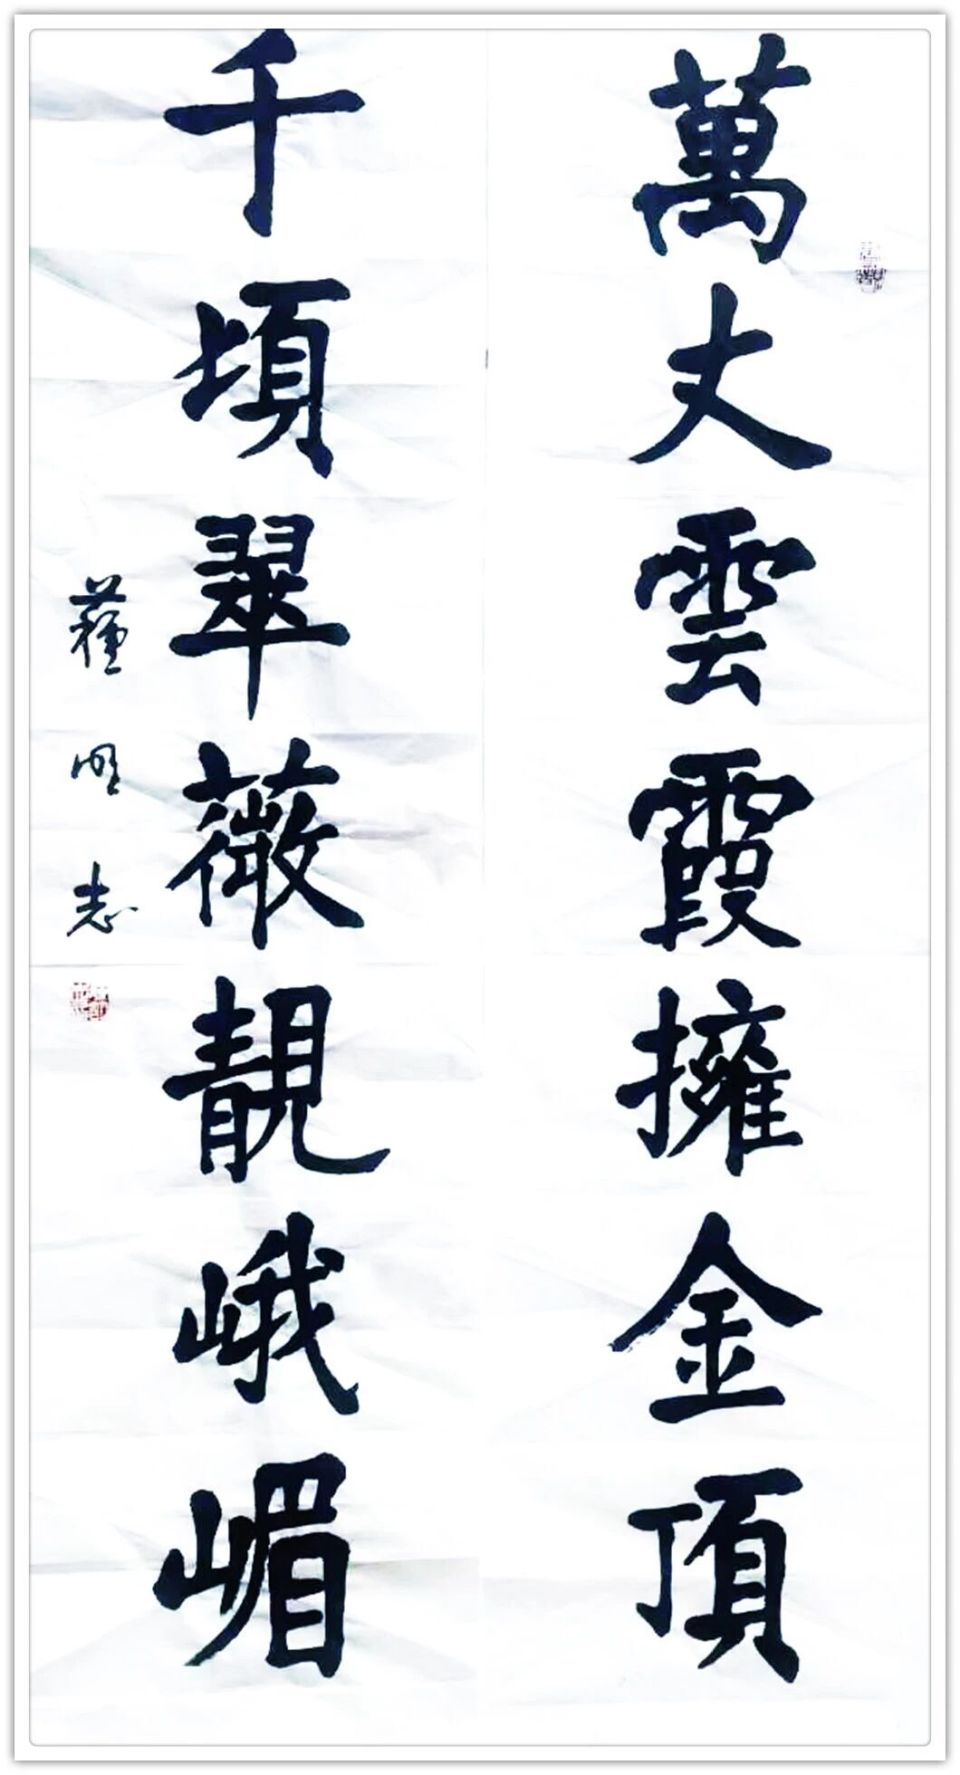 萬丈雲霞擁金頂
千頃翠薇靚峨嵋
明志